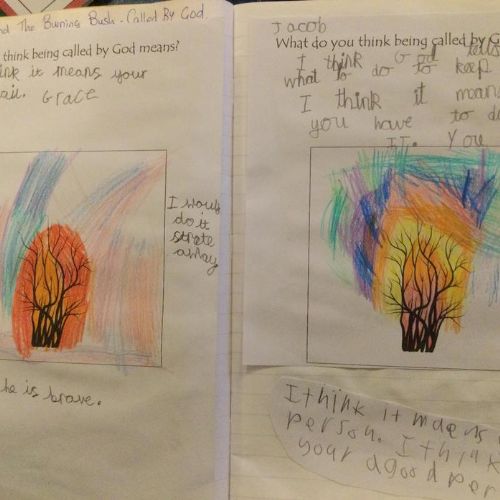 nd The Burning Bush - Called By God
think being called by God means?
ink it means your
Grace
I would
do it
strate
away
he is brave.
Jacob
What do you think being called by G
I think God tells
what to do to keep
I think it means
you have to di
IT. You
I think it maens
person. I think
your a good per